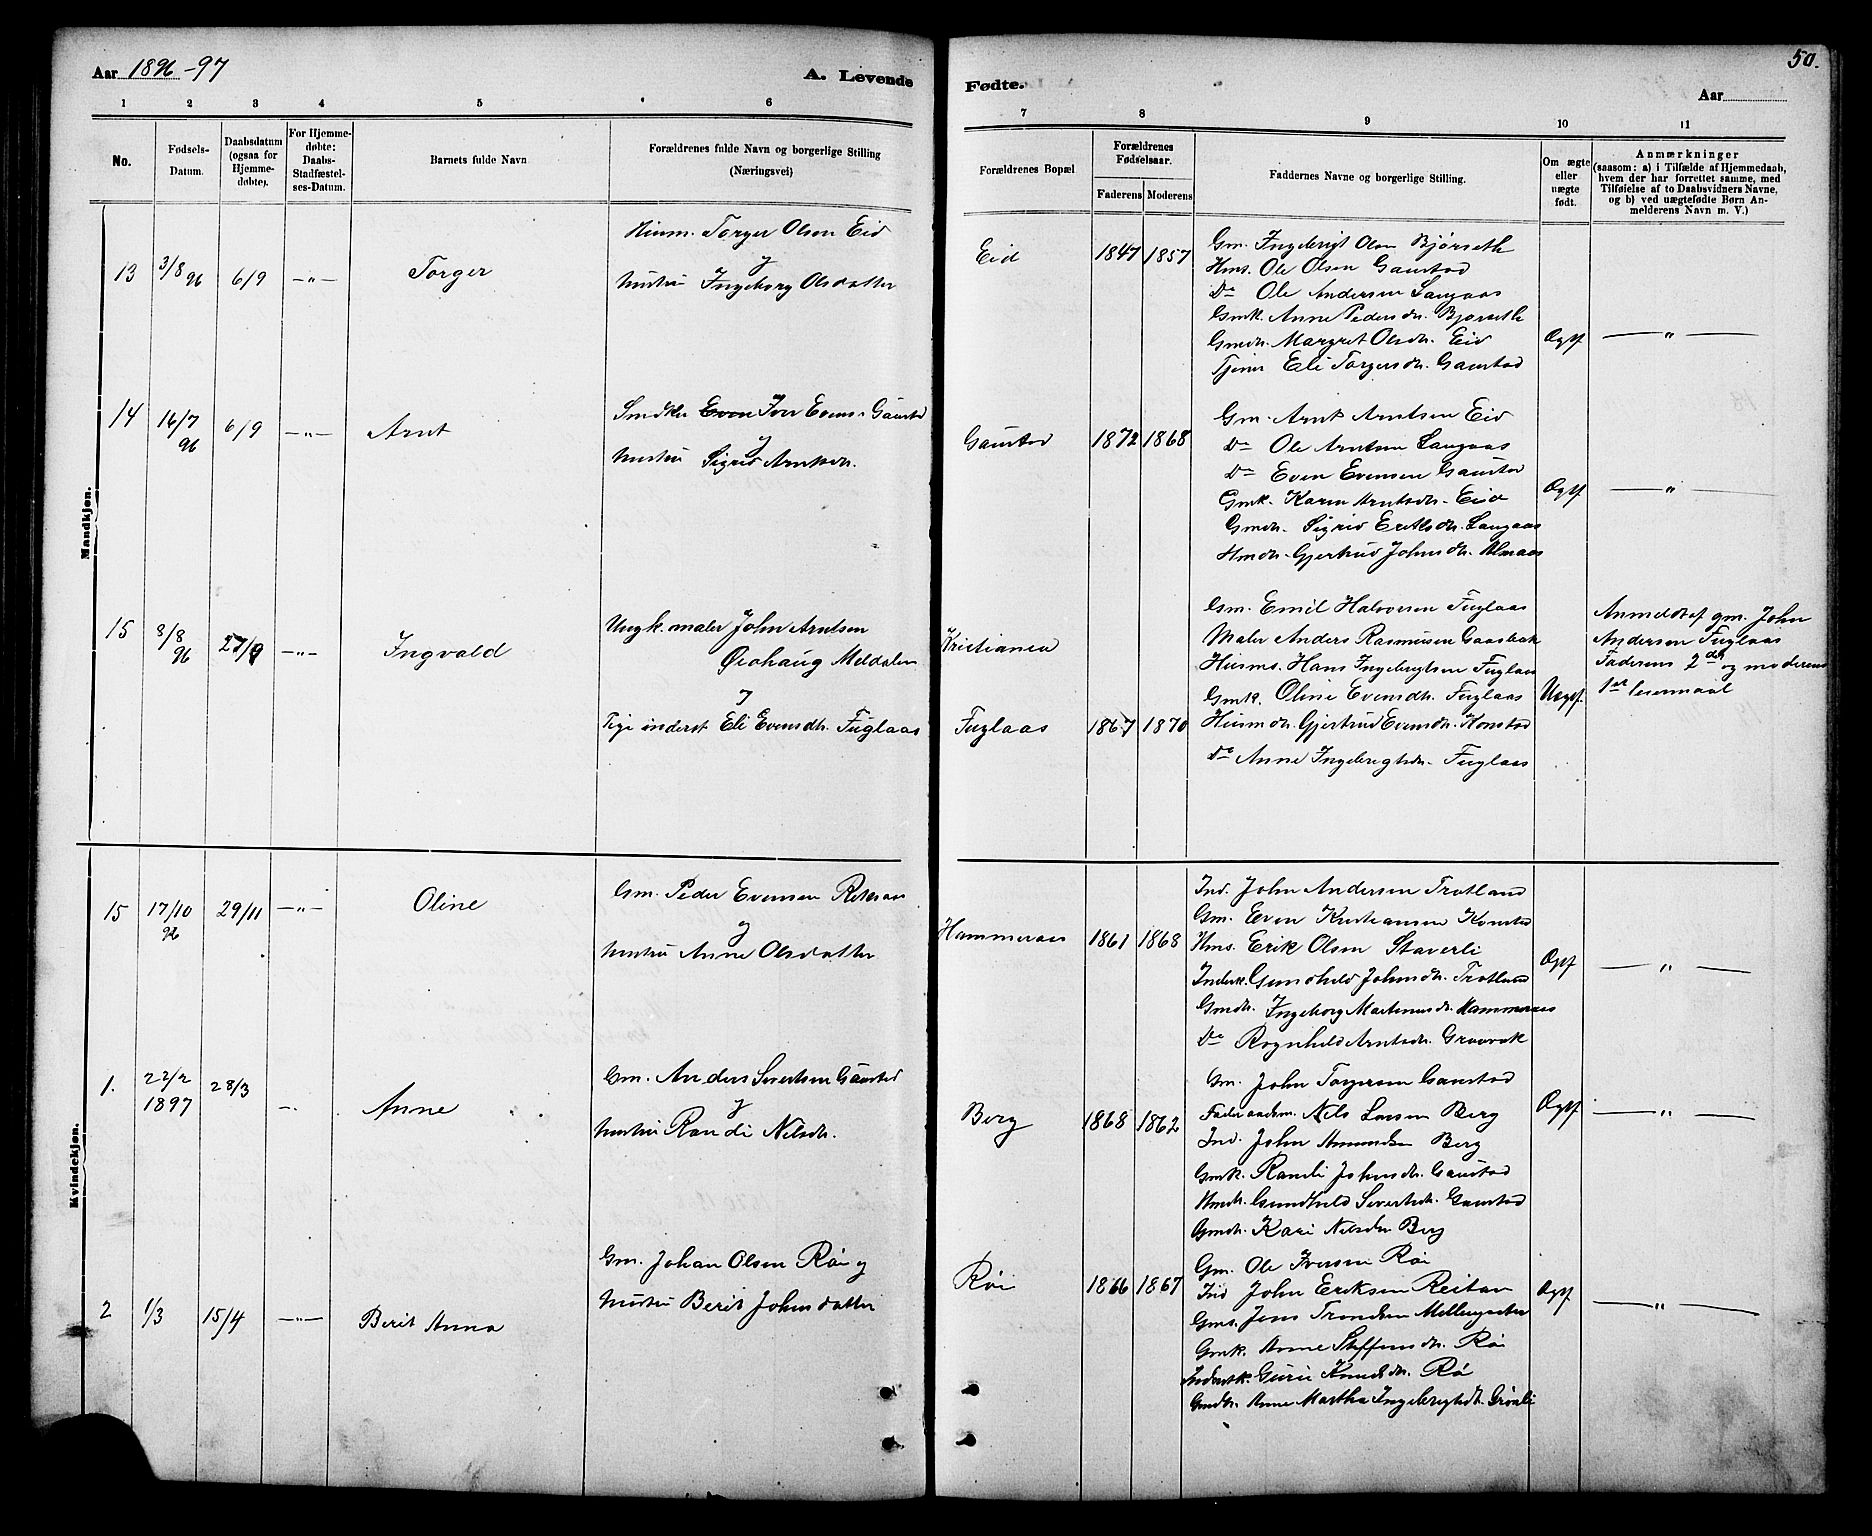 Aar 1896-97
A. Levende
Fødte.
Aar
50.
1 2 3 4 5 6 7 8 9 10 11
No.
Fødsels-
Datum.
Daabsdatum
(ogsaa for
Hjemme-
døbte).
For Hjemme-
døbte:
Daabs-
Stadfæstel-
ses-Datum.
Barnets fulde Navn
Forældrenes fulde Navn og borgerlige Stilling
(Næringsvei)
Forældrenes Bopæl
Forældrenes
Fødselsaar.
Faderens Moderens
Faddernes Navne og borgerlige Stilling.
Om ægte
eller
uægte
født.
Anmærkninger
(saasom: a) i Tilfælde af Hjemmedaab,
hvem der har forrettet samme, med
Tilføielse af to Daabsvidners Navne,
og b) ved uægtefødte Børn An-
melderens Navn m. V.)
Mandkjøn.
13 3/8 96 6/9 —"— Torger
Husm. Torger Olsen Eid
og
Hustru Ingeborg Olsdatter
Eid 1847 1857
Gm. Ingebrigt Olsen Bjørseth
Hms. Ole Olsen Gaustad
Do Ole Andersen Langaas
Gmk. Anne Pedersdtr. Bjørseth
Gmdtr. Margret Olsdtr. Eid
Tjener Eli Torgersdtr. Gaustad
Ægtf —"—
14 16/7 96 6/9 —"— Arnt
Smdkr Even Iver Evens. Gaustad
og
Hustru Sigrid Arntsdtr.
Gaustad 1872 1868
Gm. Arnt Arntsen Eid
Do Ole Arntsen Langaas
Do Even Evensen Gaustad
Gmk. Karen Arntsdtr. Eid
Gmdtr. Sigrid Eriksdtr. Langaas
Hmdtr. Gjertrud Johnsdtr. Almaas
Ægtf —"—
15 8/8 96 27/9 —"— Ingvald
Ungk. maler John Arntsen
Øiahaug Meldalen
og
Pige inderst Eli Evensdtr. Fuglaas
Kristiania
Fuglaas 1867 1870
Gm. Emil Halvorsen Fuglaas
Maler Anders Rasmusen Gaasbak
Husms. Hans Ingebrigtsen Fuglaas
Gmk. Oline Evensdtr. Fuglaas
Husmdtr. Gjertrud Evensdtr. Konstad
Do Anne Ingebrigtsdtr. Fuglaas
Uægtf.
Anmeldt af gm. John
Andersen Fuglaas
Faderens 2det og moderens
1ste leiermaal
Kvindekjøn.
15 17/10 96 29/11 —"— Oline
Gm. Peder Evensen Reksaa
og
Hustru Anne Olsdatter
Hammeraas 1861 1868
Ind. John Andersen Trotland
Gm. Even Kristiansen Konstad
Hms. Erik Olsen Staverli
Inderk. Gunhild Johnsdtr. Trotland
Gmdtr. Ingeborg Martinusdtr. Hammeraas
Do Rognhild Arntsdtr. Graavak
Ægtf —"—
1. 22/2 1897 28/3 —. Anne
Gm. Anders Sivertsen Gaustad
og
Hustru Randi Nilsdtr.
Berg 1868 1862
Gm. John Torgersen Gaustad
Føderaadsm. Nils Larsen Berg
Ind. John Amundsen Berg
Gmk. Randi Johnsdtr. Gaustad
Hmdtr. Gundhild Sivertsdtr. Gaustad
Gmdtr. Kari Nilsdtr Berg
Ægtf —"—
2 1/3 15/4 —"— Berit Anna
Gm. Johan Olsen Røi og
Hustru Berit Johnsdatter
Røi 1866 1867
Gm. Ole Iversen Røi
Ind John Eriksen Reitan
Gms. Jens Trondsen Mellingsæter
Gmk. Anne Steffensdtr. Røi
Inderstk. Guri Knudsdtr. Rø
Gmdtr. Anne Martha Ingebrigtsdt. Grønli
Ægtf —"—